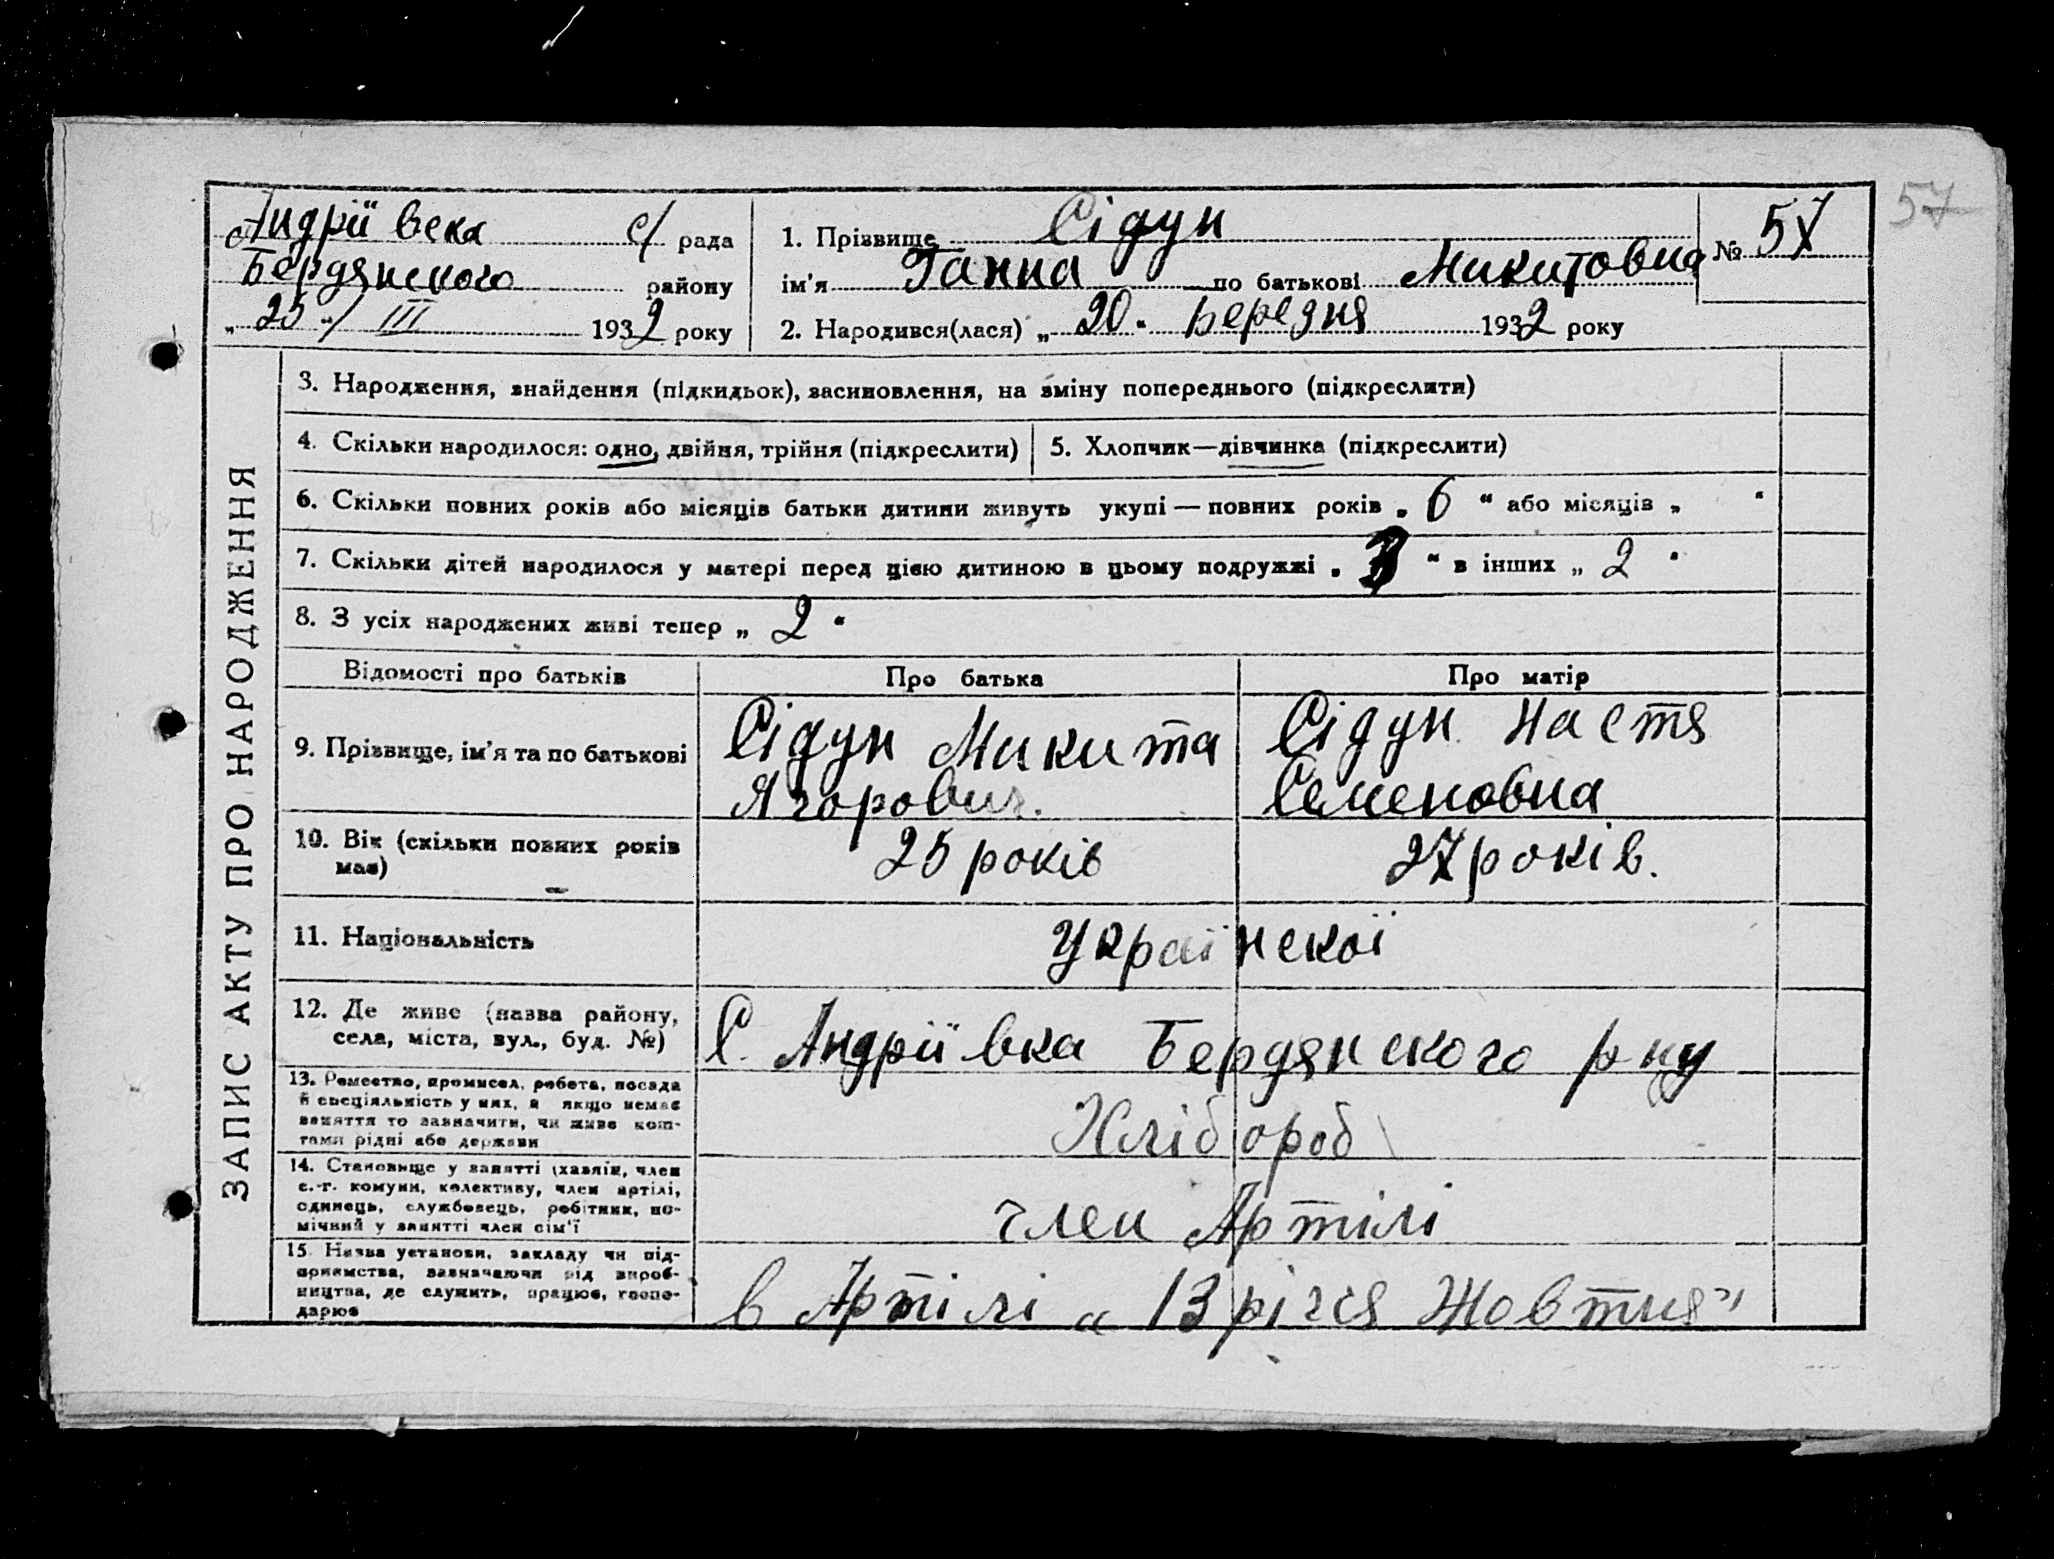 57
Андріївска с/ рада
Бердянского району
„ 25 “/ III 1932 року
1. Прізвище Сідун
ім'я Ганна по батькові Микитовна
№ 57
2. Народився(лася) „ 20 " Березня 1932 року
ЗАПИС АКТУ ПРО НАРОДЖЕННЯ
3. Народження, знайдення (підкидьок), засиновлення, на зміну попереднього (підкреслити)
4. Скільки народилося: одно, двійня, трійня (підкреслити)
5. Хлопчик—дівчинка (підкреслити)
6. Скільки повних років або місяців батьки дитини живуть укупі — повних років „ 6 “ або місяців „ “
7. Скільки дітей народилося у матері перед цією дитиною в цьому подружжі „ 3 “ в інших „ 2 "
8. З усіх народжених живі тепер „ 2 “
Відомості про батьків
Про батька
Про матір
9. Прізвище, ім'я та по батькові
Сідун Микита
Ягорович.
Сідун Настя
Семеновна
10. Вік (скільки повних років
має)
25 років
27 років.
11. Національність
Українскої
12. Де живе (назва району,
села, міста, вул., буд. №)
С. Андріївка Бердянского р-ну
13. Ремество, промисел, робота, посада
й спеціяльність у них, а якщо немає
заняття то зазначити, чи живе кош-
тами рідні або держави
Хлібороб
14. Становище у занятті (хазяїн, член
с.-г. комуни, колективу, член артілі,
одинець, службовець, робітник, по-
мічний у занятті член сім'ї
член Артілі
15. Назва установи, закладу чи під-
приємства, зазначаючи рід вироб-
ництва, де служить, працює, госпо-
дарює
в Артілі „ 13 річя Жовтня"